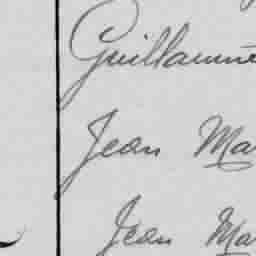 Guillaume
Jean Mar
Jean Mar